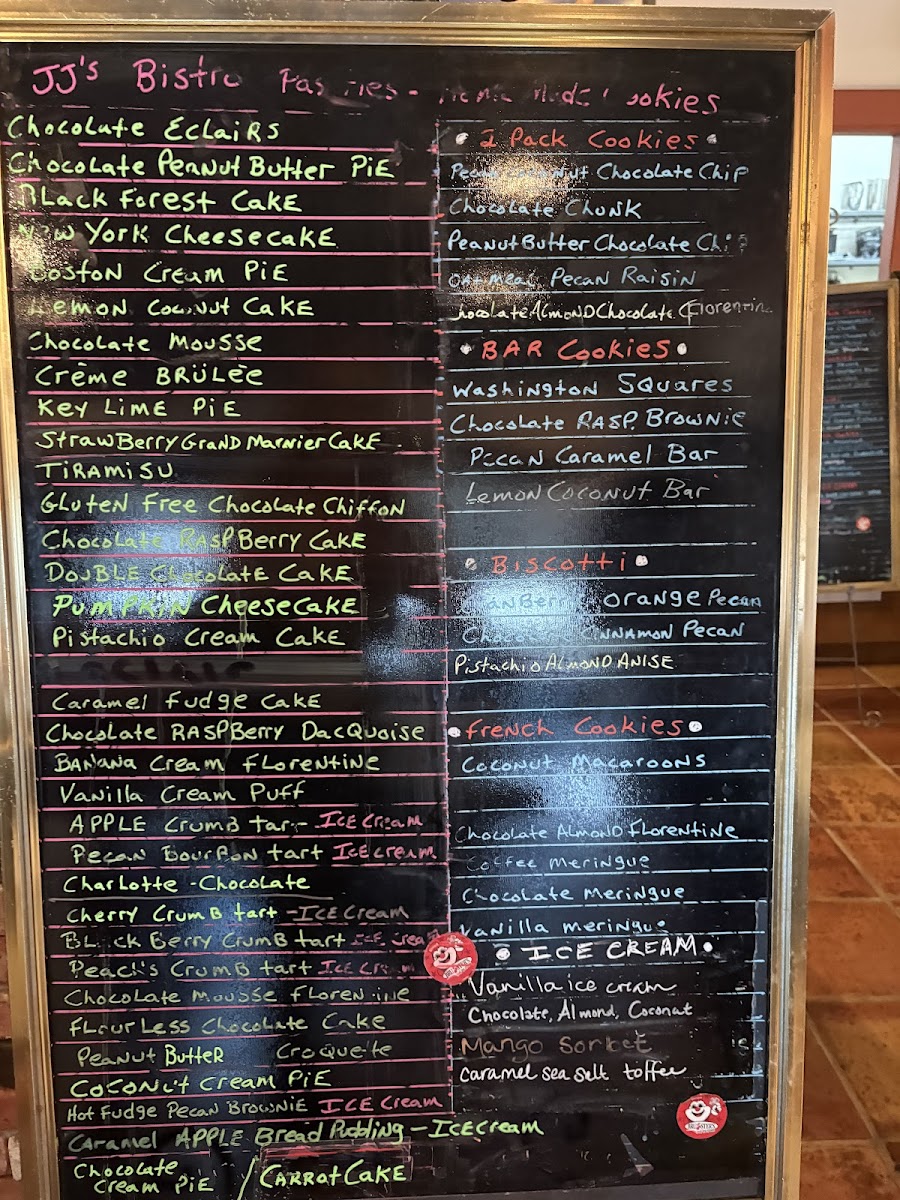 JJ's Bistro Pastries - Home Made Cookies
Chocolate Eclairs
Chocolate Peanut Butter Pie
Black Forest Cake
New York Cheesecake
Boston Cream Pie
Lemon Coconut Cake
Chocolate Mousse
Crème Brülée
Key Lime Pie
Strawberry Grand Marnier Cake
Tiramisu
Gluten Free Chocolate Chiffon
Chocolate Raspberry Cake
Double Chocolate Cake
Pumpkin Cheesecake
Pistachio Cream Cake
Caramel Fudge Cake
Chocolate Raspberry Dacquoise
Banana Cream Florentine
Vanilla Cream Puff
Apple Crumb tart - Ice Cream
Pecan Bourbon tart Ice cream
Charlotte - Chocolate
Cherry Crumb tart - Ice Cream
Black Berry Crumb tart Ice Cream
Peach's Crumb tart Ice Cream
Chocolate Mousse Florentine
Flourless Chocolate Cake
Peanut Butter Croquette
Coconut Cream Pie
Hot Fudge Pecan Brownie Ice Cream
Caramel Apple Bread Pudding - Ice Cream
Chocolate Cream Pie / Carrot Cake
2 Pack Cookies
Pecan Coconut Chocolate Chip
Chocolate Chunk
Peanut Butter Chocolate Chip
Oatmeal Pecan Raisin
Chocolate Almond Chocolate Florentine
Bar Cookies
Washington Squares
Chocolate Rasp. Brownie
Pecan Caramel Bar
Lemon Coconut Bar
Biscotti
Cranberry Orange Pecan
Chocolate Cinnamon Pecan
Pistachio Almond Anise
French Cookies
Coconut Macaroons
Chocolate Almond Florentine
Coffee Meringue
Chocolate Meringue
Vanilla meringue
ICE CREAM
Vanilla ice cream
Chocolate, Almond, Coconut
Mango Sorbet
Caramel sea salt toffee